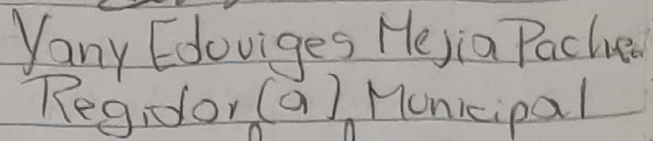 Yany Edouiges Mejia
Regidor(a) Municipal